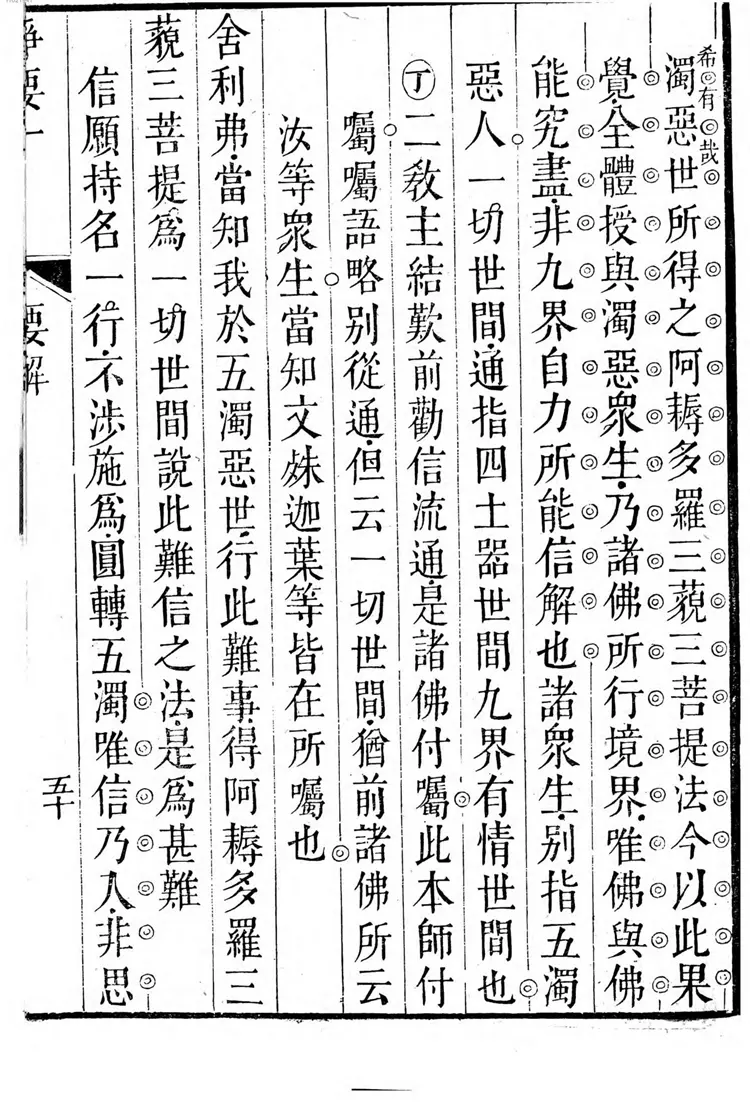 希有哉
濁惡世所得之阿耨多羅三藐三菩提法今以此果
覺全體授與濁惡衆生乃諸佛所行境界唯佛與佛
能究盡非九界自力所能信解也諸衆生別指五濁
惡人一切世間通指四土器世間九界有情世間也
丁二教主結歎前勸信流通是諸佛付囑此本師付
囑囑語略別從通但云一切世間猶前諸佛所云
汝等衆生當知文殊迦葉等皆在所囑也
舍利弗當知我於五濁惡世行此難事得阿耨多羅三
藐三菩提爲一切世間說此難信之法是爲甚難
信願持名一行不涉施爲圓轉五濁唯信乃入非思
要一 要解 五十